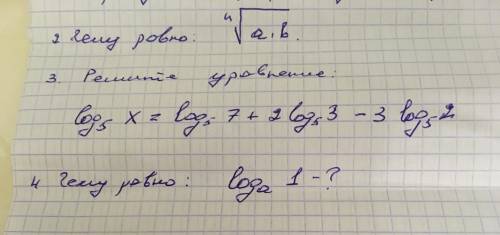 2 Чему равно: ⁿ√a.b.
3. Решите уравнение:
log₅ x = log₅ 7 + 2 log₅ 3 - 3 log₅ 2
4 Чему равно: logₐ 1 - ?